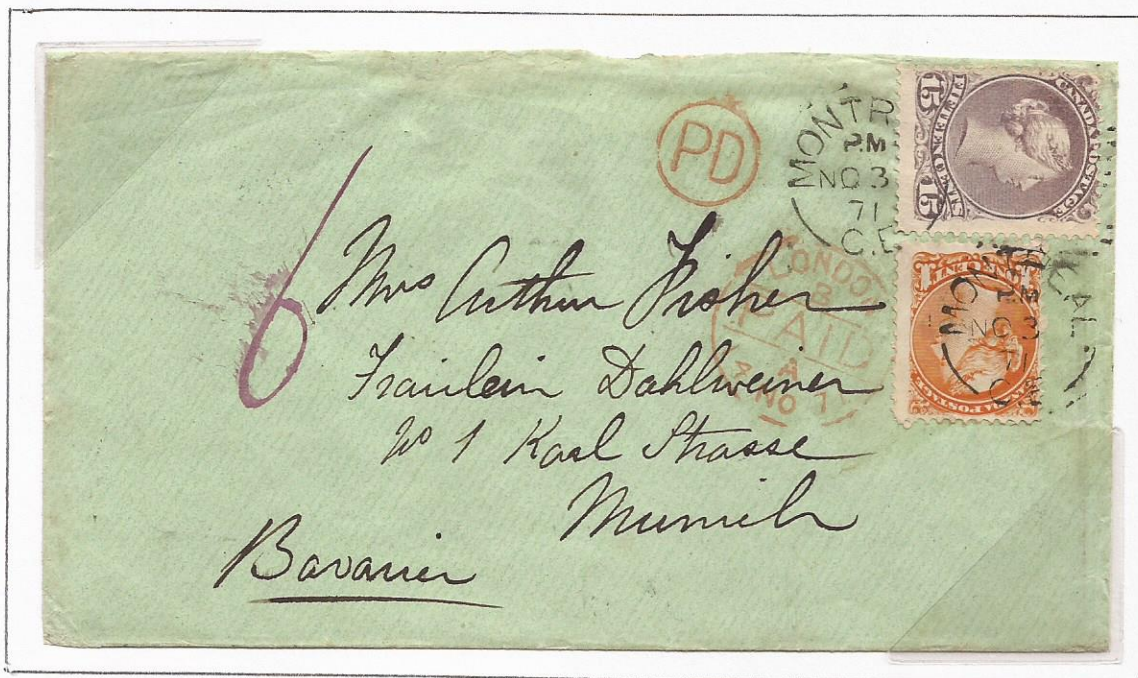 PD
MONTR
PM
NO 3
71
C.E
15 15
CANADA POSTAGE
LONDON
PAID
NO
MONTREAL
PM
NO 3
71
6
Mrs Arthur Fisher
Fraulein Dahlweiner
No 1 Karl Strasse
Munich
Bavaria